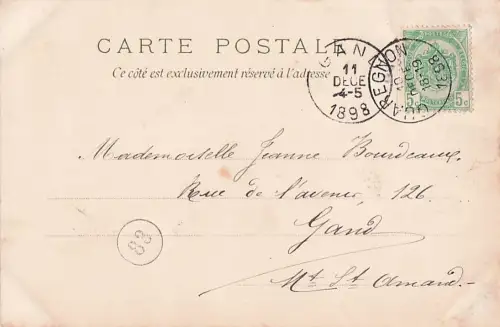 CARTE POSTALE
Ce côté est exclusivement réservé à l'adresse
GAN
11
DECE
4-5
1898
QUAREGNON
1898
5c
Mademoiselle Jeanne Bourdeaux.
Rue de l'avenir, 126.
Gand
Mt St Amand.
83